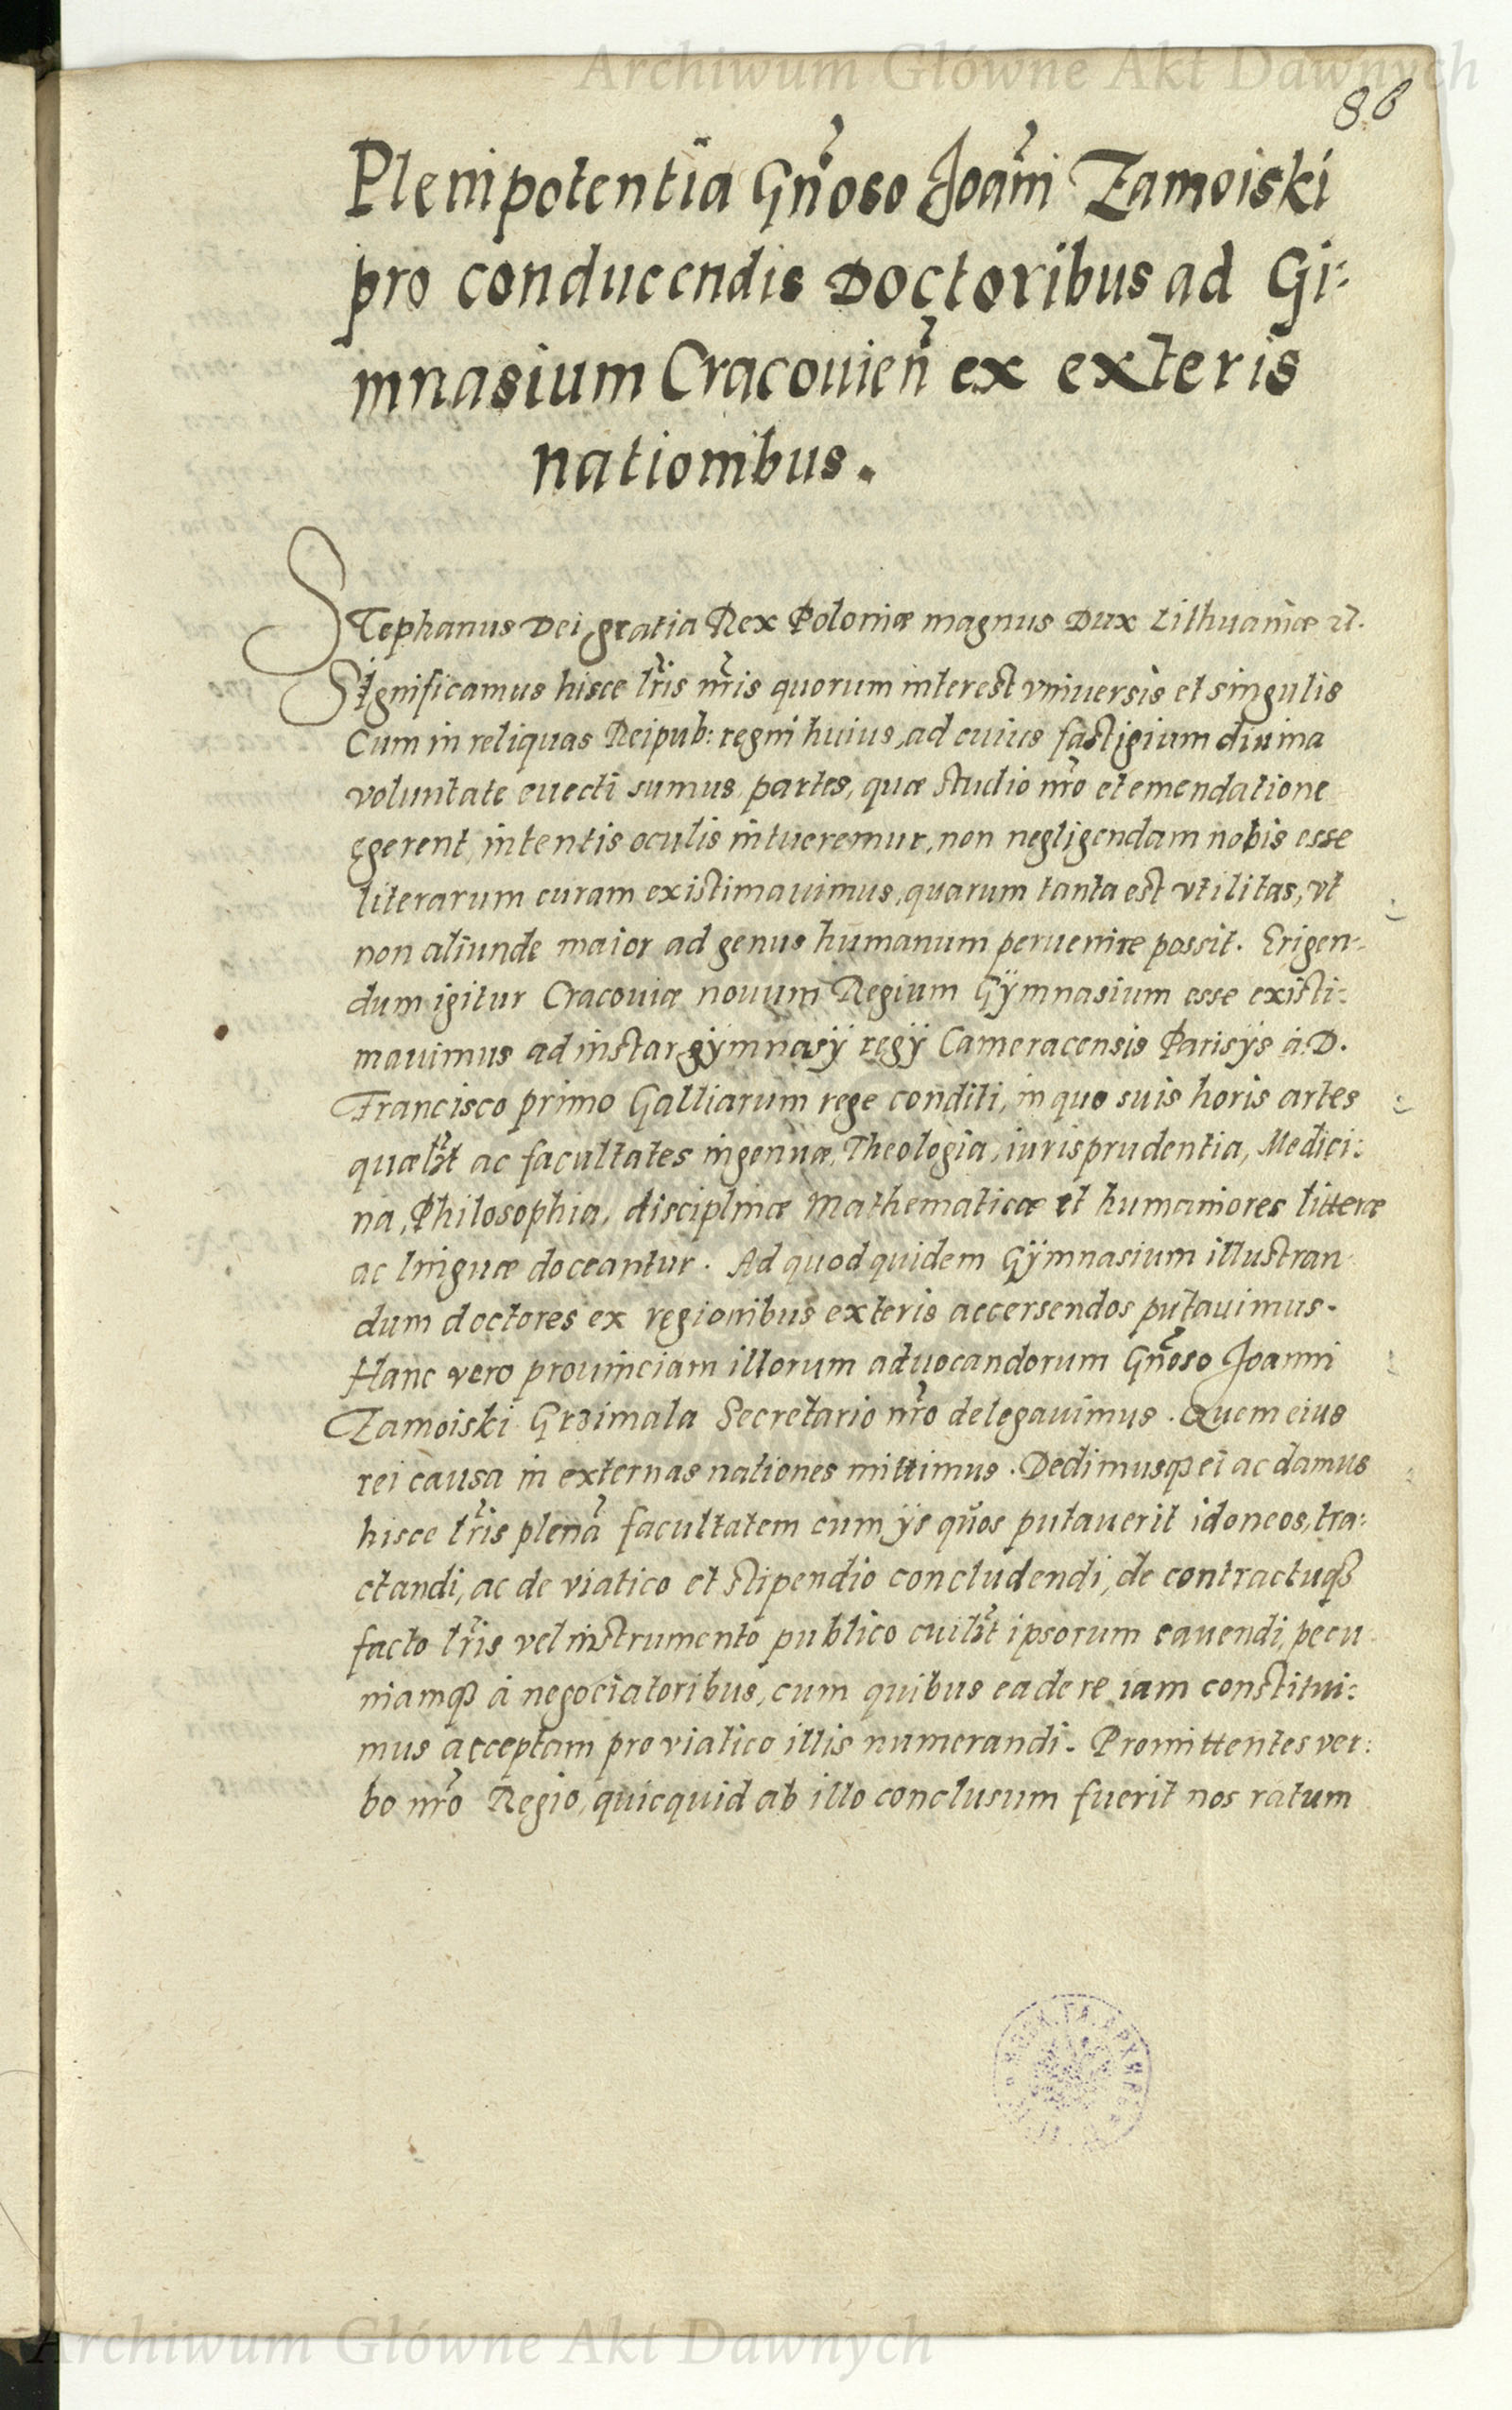 Archiwum Główne Akt Dawnych
86
Plenipotentia Gn̄oso Joan̄i Zamoiski
pro conducendis Doctoribus ad Gi:
mnasium Cracouien̄ ex exteris
nationibus.
Stephanus Dei gratia Rex Poloniæ magnus Dux Lithuaniæ etc.
Significamus hisce lr̄is nr̄is quorum interest vniuersis et singulis
Cum in reliquas Reipub: regni huius, ad cuius fastigium diuina
voluntate euecti sumus partes, quæ studio nr̄o et emendatione
egerent, intentis oculis intueremur, non negligendam nobis esse
literarum curam existimauimus, quarum tanta est vtilitas, vt
non aliunde maior ad genus humanum peruenire possit. Erigen:
dum igitur Cracouiæ nouum Regium Gÿmnasium esse existi:
mauimus ad instar gÿmnasÿ regÿ Cameracensis Parisÿs à D.
Francisco primo Galliarum rege conditi, in quo suis horis artes
quælꝫt ac facultates ingenuæ, Theologia, iurisprudentia, Medici:
na, Philosophia, disciplinæ Mathematicæ et humaniores litteræ
ac linguæ doceantur. Ad quod quidem Gÿmnasium illustran
dum doctores ex regionibus exteris accersendos putauimus.
Hanc vero prouinciam illorum aduocandorum Gn̄oso Joanni
Zamoiski Grzimala Secretario nr̄o delegauimus. Quem eius
rei causa in externas nationes mittimus. Dedimusqꝫ ei ac damus
hisce lr̄is plenā facultatem cum ÿs quos putauerit idoneos, tra:
ctandi, ac de viatico et stipendio concludendi, de contractuqꝫ
facto lr̄is vel instrumento publico cuilꝫt ipsorum cauendi, pecu
niamqꝫ à negociatoribus, cum quibus ea de re iam constitui:
mus acceptam pro viatico illis numerandi. Promittentes ver:
bo nr̄o Regio, quicquid ab illo conclusum fuerit nos ratum
Archiwum Główne Akt Dawnych